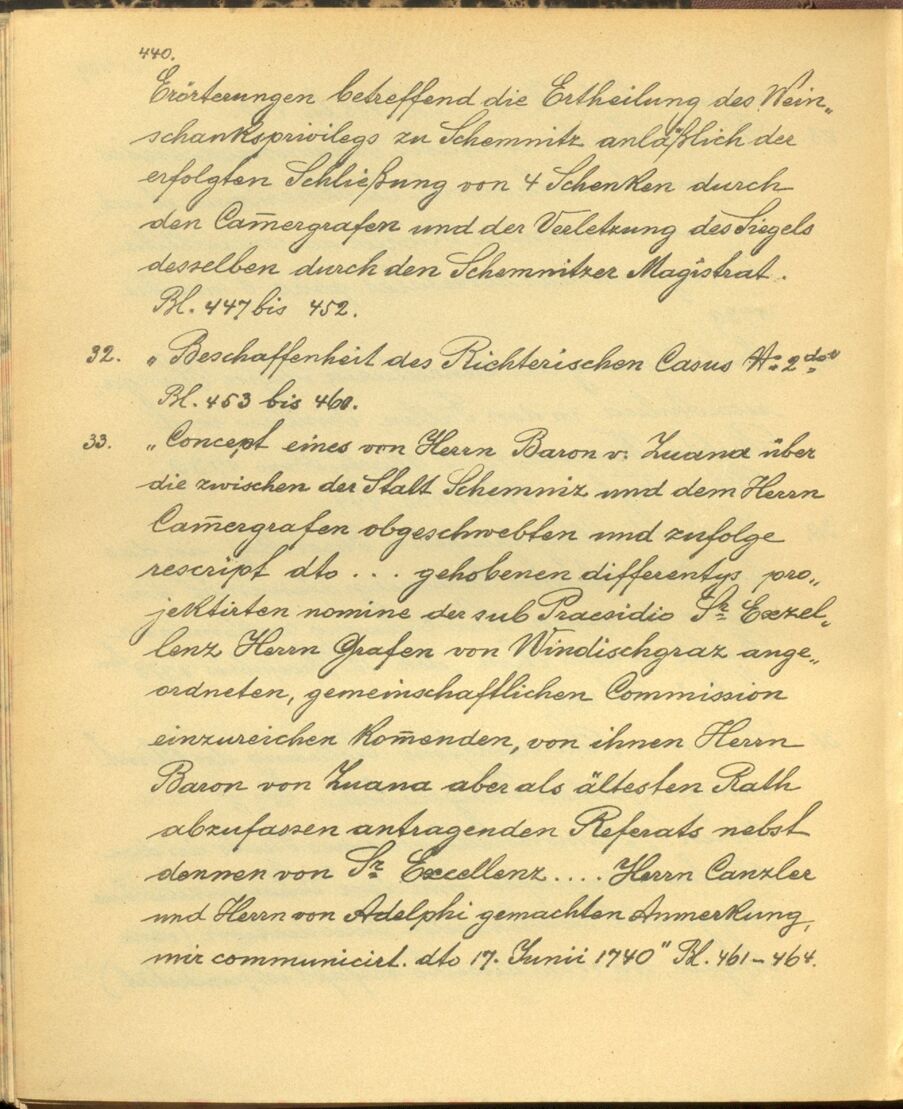 440.
Erörterungen betreffend die Ertheilung des Wein„
schanksprivilegs zu Schemnitz anläßlich der
erfolgten Schließung von 4 Schenken durch
den Cam̄ergrafen und der Verletzung des Siegels
desselben durch den Schemnitzer Magistrat.
Bl. 447 bis 452.
32. „Beschaffenheit des Richterischen Casus
Bl. 453 bis 460.
33. „Concept eines von Herrn Baron v. Zuana über
die zwischen der Stalt Schemniz und dem Herrn
Cam̄ergrafen obgeschwebten und zufolge
rescript dto . . . gehobenen differentys pro„
jektirten nomine der sub Praesidio Sr Exzel„
lenz Herrn Grafen von Windischgraz ange„
ordneten, gemeinschaftlichen Commission
einzureichen kom̄enden, von ihnen Herrn
Baron von Zuana aber als ältesten Rath
abzufassen antragenden Referats nebst
dennen von Sr Excellenz .... Herrn Canzler
und Herrn von Adelphi gemachten Anmerkung,
mir communicirt. dto 17. Junii 1740" Bl. 461–464.